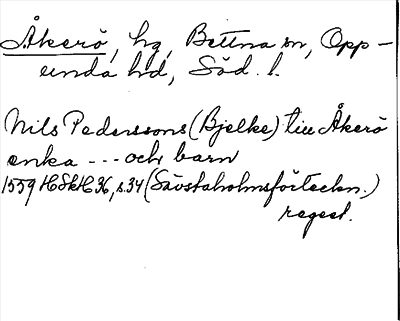 Åkerö, hg, Bettna sn, Opp-
unda hd, Söd. l.
Nils Pederssons (Bjelke) till Åkerö
enka --- och barn
1559 HSkH 36, s. 34 (Sävstaholmsförteckn.)
regest.